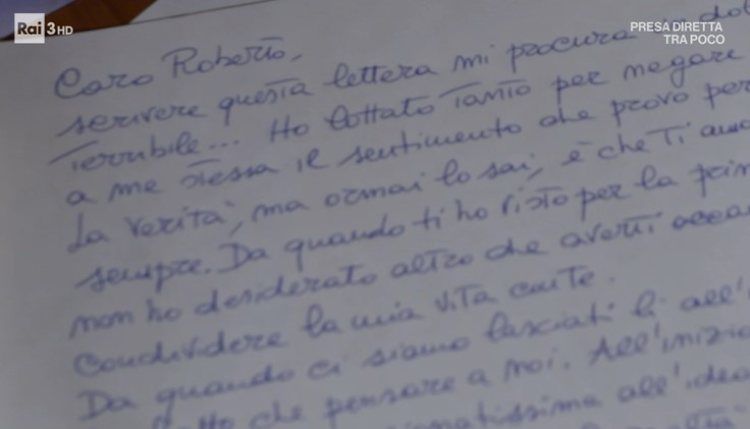 Rai 3HD
PRESA DIRETTA
TRA POCO
Caro Roberto,
scrivere questa lettera mi procura dol
Terribile... Ho lottato Tanto per negare
a me stessa il sentimento che provo per
La verità, ma ormai lo sai, è che Ti amo
sempre. Da quando ti ho visto per la prim
non ho desiderato altro che averti acca
Condividere la mia vita con te.
Da quando ci siamo lasciati lì all'
che pensare a noi. All'inizio
all'idea